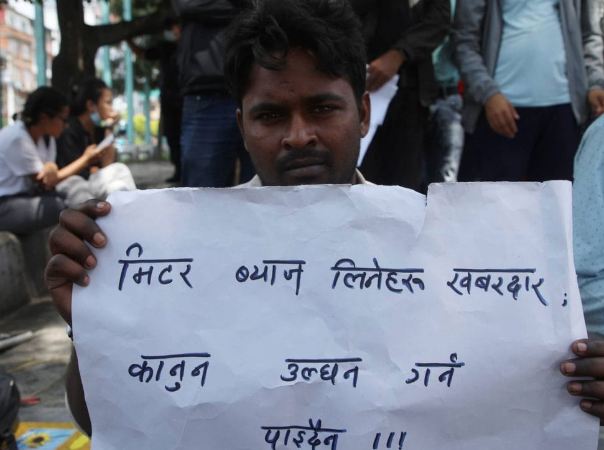 मिटर ब्याज लिनेहरू खबरदार,
कानुन उल्घन गर्न
पाइदैन !!!